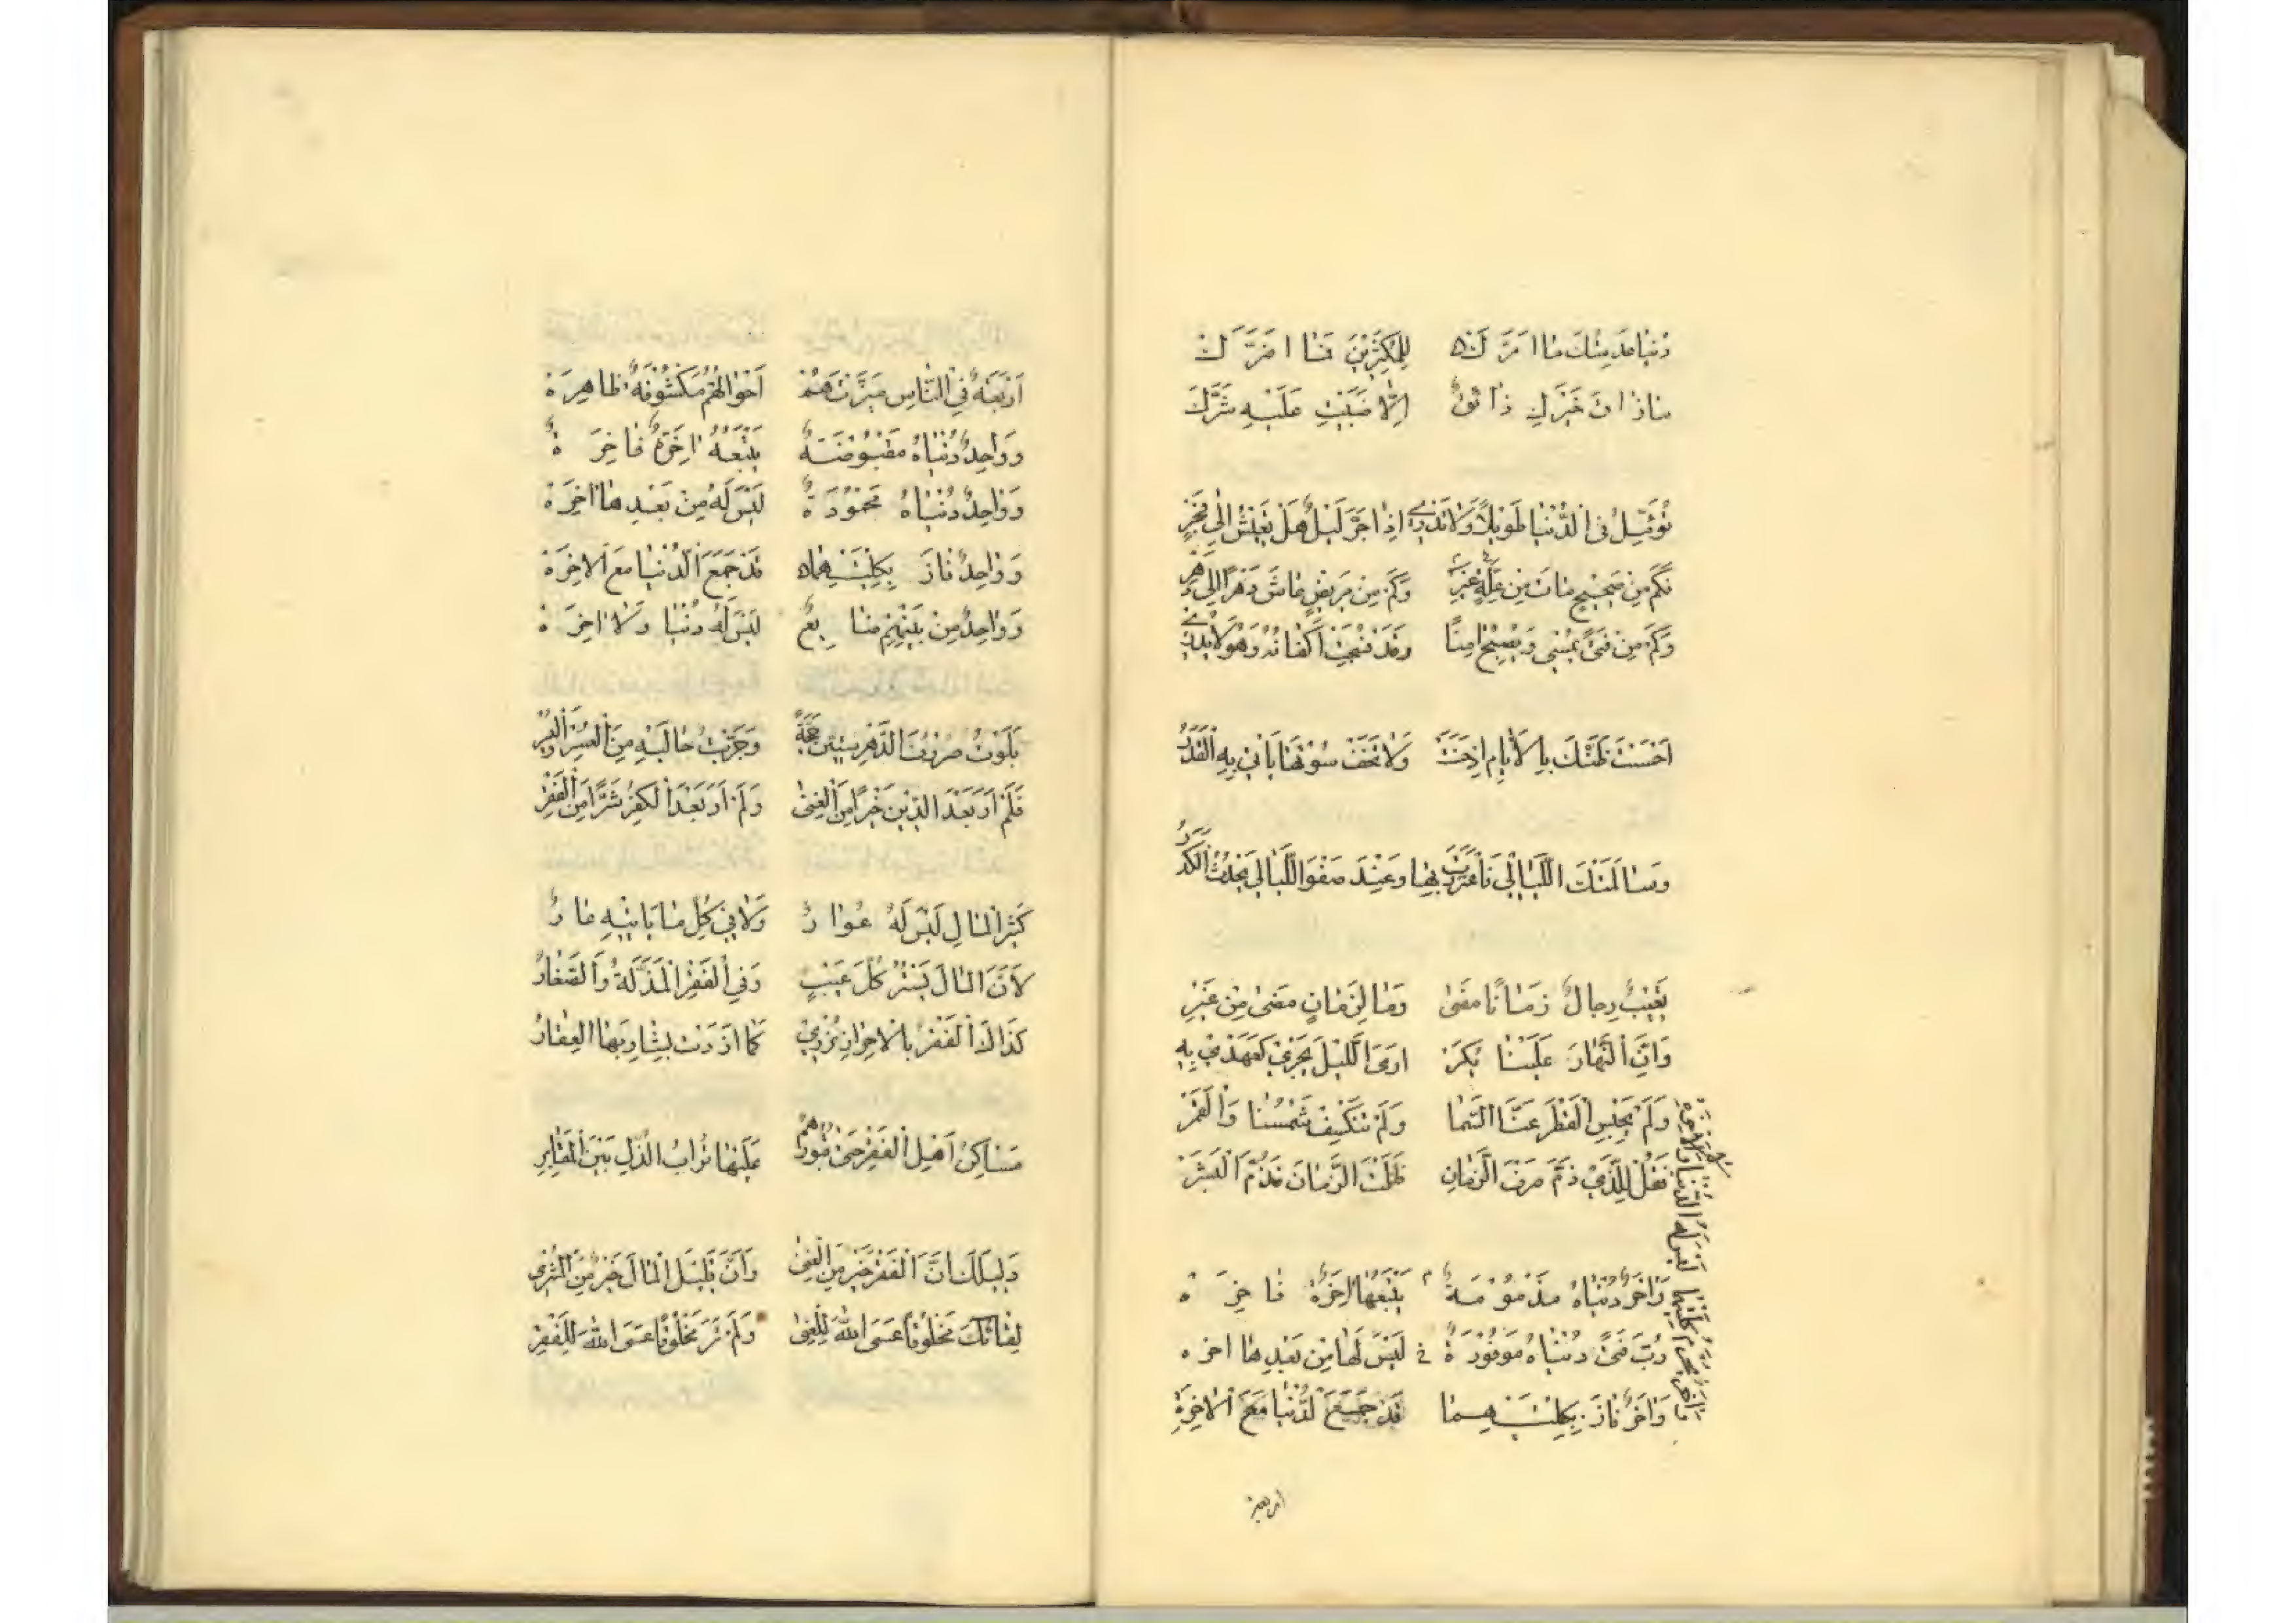 دُنْيَا فَدَيتُكَ مَا اَمَرَّكَ لِلْمُكْثِرِيْنَ فَمَا اَضَرَّكْ
مَا ذَاقَ خَيْرَكِ ذَائِقٌ اِلَّا صَبَبْتِ عَلَيْهِ شَرَّكْ
تُؤَمِّلُ فِى الدُّنْيَا طَوِيْلًا وَلَا تَدْرِيْ اِذَا جَنَّ لَيْلٌ هَلْ تَعِيْشُ اِلٰى فَجْرِ
فَكَمْ مِنْ صَحِيْحٍ مَاتَ مِنْ غَيْرِ عِلَّةٍ وَكَمْ مِنْ مَرِيْضٍ عَاشَ دَهْرًا اِلٰى دَهْرِ
وَكَمْ مِنْ فَتًى يُمْسِى وَيُصْبِحُ اٰمِنًا وَقَدْ نُسِجَتْ اَكْفَانُهُ وَهُوَ لَا يَدْرِيْ
اَحْسَنْتَ ظَنَّكَ بِالْاَيَّامِ اِذْ حَسُنَتْ وَلَا تَخَفْ سُوْءَ مَا يَأْتِيْ بِهِ الْقَدَرُ
وَسَالَمَتْكَ اللَّيَالِيْ فَاغْتَرَرْتَ بِهَا وَعِنْدَ صَفْوِ اللَّيَالِيْ يَحْدُثُ الْكَدَرُ
يَعِيْبُ رِجَالٌ زَمَانًا مَضٰى وَمَا لِزَمَانٍ مَضٰى مِنْ غِيَرِ
وَاَنَّ النَّهَارَ عَلَيْنَا يَكُرْ اَرَى اللَّيْلَ يَجْرِيْ كَعَهْدِيْ بِهِ
وَلَمْ يَحْبِسِ الْقَطْرَ عَنَّا السَّمَا وَلَمْ تَنْكَسِفْ شَمْسُنَا وَالْقَمَرْ
فَقُلْ لِلَّذِيْ ذَمَّ صَرْفَ الزَّمَانِ ظَلَمْتَ الزَّمَانَ فَذُمَّ الْبَشَرْ
وَاٰخَرُ دُنْيَاهُ مَذْمُوْمَةٌ يَتْبَعُهَا اٰخِرَةٌ فَاخِرَةْ
رُبَّ فَتًى دُنْيَاهُ مَوْفُوْرَةٌ لَيْسَ لَهَا مِنْ بَعْدِهَا اٰخِرَه
وَاٰخَرُ فَازَ بِكِلْتَيْهِمَا قَدْ جَمَعَ الدُّنْيَا مَعَ الْاٰخِرَةِ
لَيْسَ لَهُ الدُّنْيَا وَلَا الْاٰخِرَةْ
اَرْبَعَةٌ فِى النَّاسِ مَيَّزْتُهُمْ اَحْوَالُهُمْ مَكْشُوْفَةٌ ظَاهِرَةْ
وَوَاحِدٌ دُنْيَاهُ مَقْبُوْضَةٌ يَتْبَعُهُ اٰخِرَةٌ فَاخِرَةٌ
وَوَاحِدٌ دُنْيَاهُ مَحْمُوْدَةٌ لَيْسَ لَهُ مِنْ بَعْدِهَا اٰخِرَةْ
وَوَاحِدٌ فَازَ بِكِلْتَيْهِمَا قَدْ جَمَعَ الدُّنْيَا مَعَ الْاٰخِرَةْ
وَوَاحِدٌ مِنْ بَيْنِهِمْ ضَايِعٌ لَيْسَ لَهُ دُنْيَا وَلَا اٰخِرَةْ
بَلَوْتُ صُرُوْفَ الدَّهْرِ سِتِّيْنَ حِجَّةً وَجَرَّبْتُ حَالَيْهِ مِنَ الْعُسْرِ وَالْيُسْرِ
فَلَمْ اَرَ بَعْدَ الدِّيْنِ خَيْرًا مِنَ الْغِنٰى وَلَمْ اَرَ بَعْدَ الْكُفْرِ شَرًّا مِنَ الْفَقْرِ
كَثِيْرُ الْمَالِ لَيْسَ لَهُ عُوَارٌ وَلَا فِيْ كُلِّ مَا يَاْتِيْهِ عَارُ
لِاَنَّ الْمَالَ يَسْتُرُ كُلَّ عَيْبٍ وَفِى الْفَقْرِ الْمَذَلَّةُ وَالصَّغَارُ
كَذَاكَ الْفَقْرُ بِالْاَحْرَارِ يُزْرِيْ كَمَا اَزْرَتْ بِشَارِبِهَا الْعُقَارُ
مَسَاكِنُ اَهْلِ الْفَقْرِ حَتّٰى قُبُوْرُهُمْ عَلَيْهَا تُرَابُ الذُّلِّ بَيْنَ الْمَقَابِرِ
دَلِيْلُكَ اَنَّ الْفَقْرَ خَيْرٌ مِنَ الْغِنٰى وَاَنَّ قَلِيْلَ الْمَالِ خَيْرٌ مِنَ الْمُثْرِى
لِقَاؤُكَ مَخْلُوْقًا عَصَى اللّٰهَ لِلْغِنٰى وَلَمْ تَرَ مَخْلُوْقًا عَصَى اللّٰهَ لِلْفَقْرِ